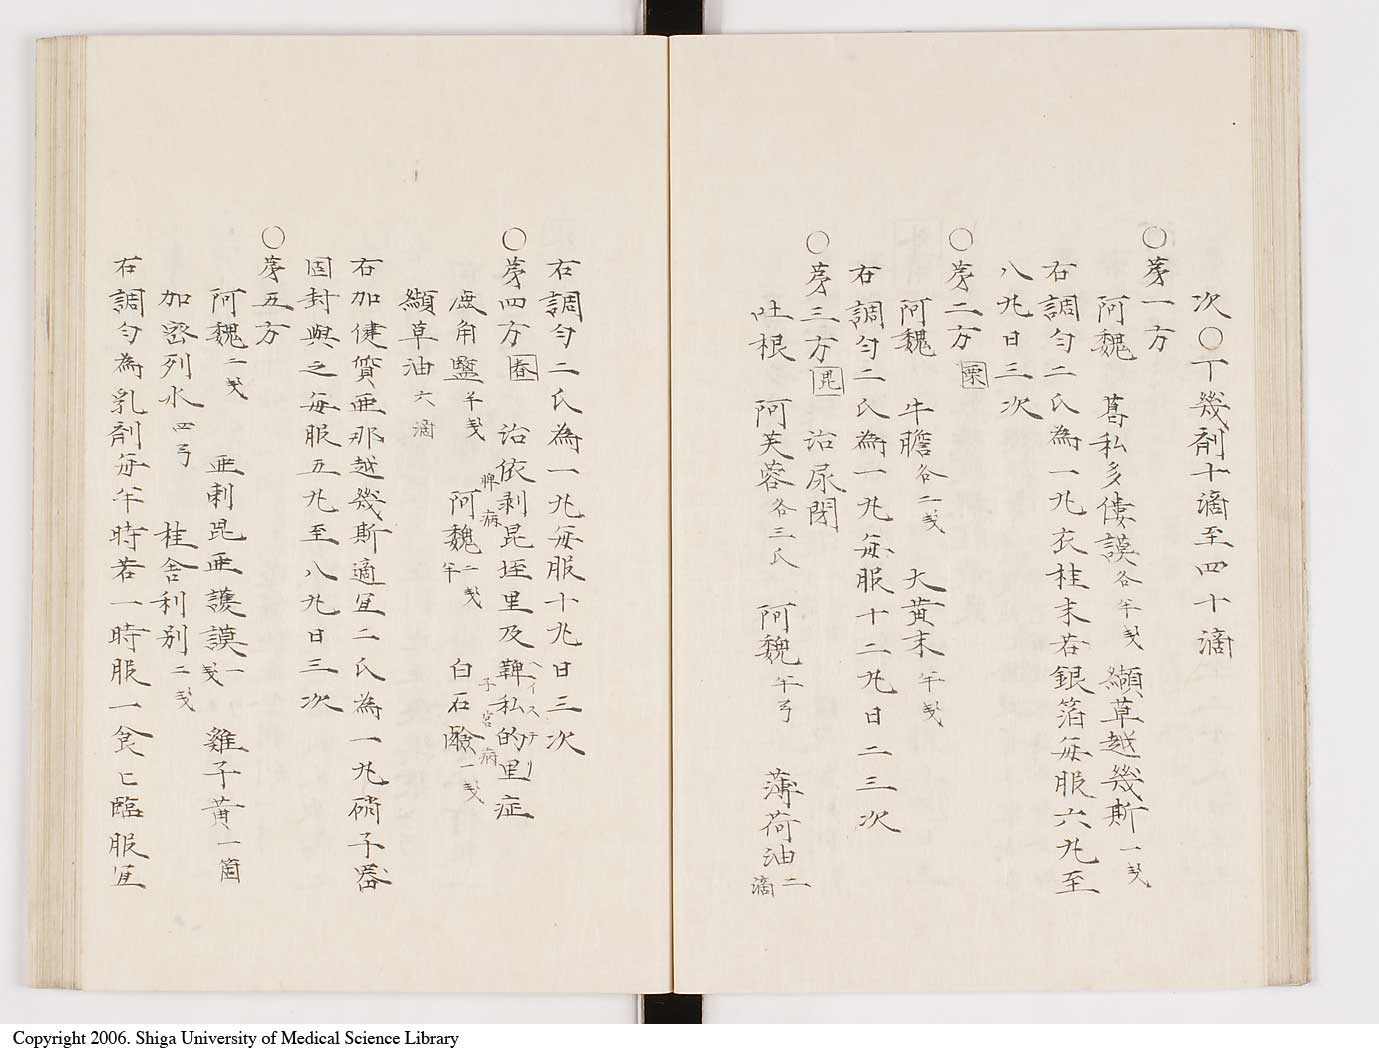 次〇丁幾剤十滴至四十滴
〇第一方
阿魏 葛私多僂謨各半戔 纈草越幾斯一戔
右調匀二氏為一丸衣桂末若銀箔毎服六丸至
八丸日三次
〇第二方 栗
阿魏 牛膽各二戔 大黄末半戔
右調匀二氏為一丸毎服十二丸日二三次
〇第三方 毘 治尿閉
吐根 阿芙蓉各三氏 阿魏半弓 薄荷油二滴
右調匀二氏為一丸毎服十丸日三次
〇第四方 舂 治依剥昆垤里及鞞私的里症
脾病 子宮病 ヘイステリ
鹿角鹽半戔 阿魏二戔半 白石鹸一戔
纈草油六滴
右加健質亜那越幾斯適宜二氏為一丸硝子器
固封與之毎服五丸至八丸日三次
〇第五方
阿魏二戔 亜剌毘亜護謨一戔 雞子黄一箇
加密列水四弓 桂舎利別二戔
右調匀為乳剤毎半時若一時服一食匕臨服宜
Copyright 2006. Shiga University of Medical Science Library